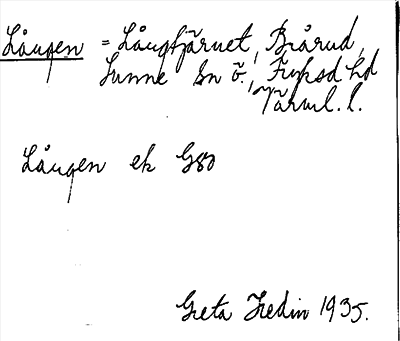 Lången = Långtjärnet, Brårud,
Sunne sn ö., Fryksd. hd
Värml. l.
Lången ek G80
Greta Hedin 1935.